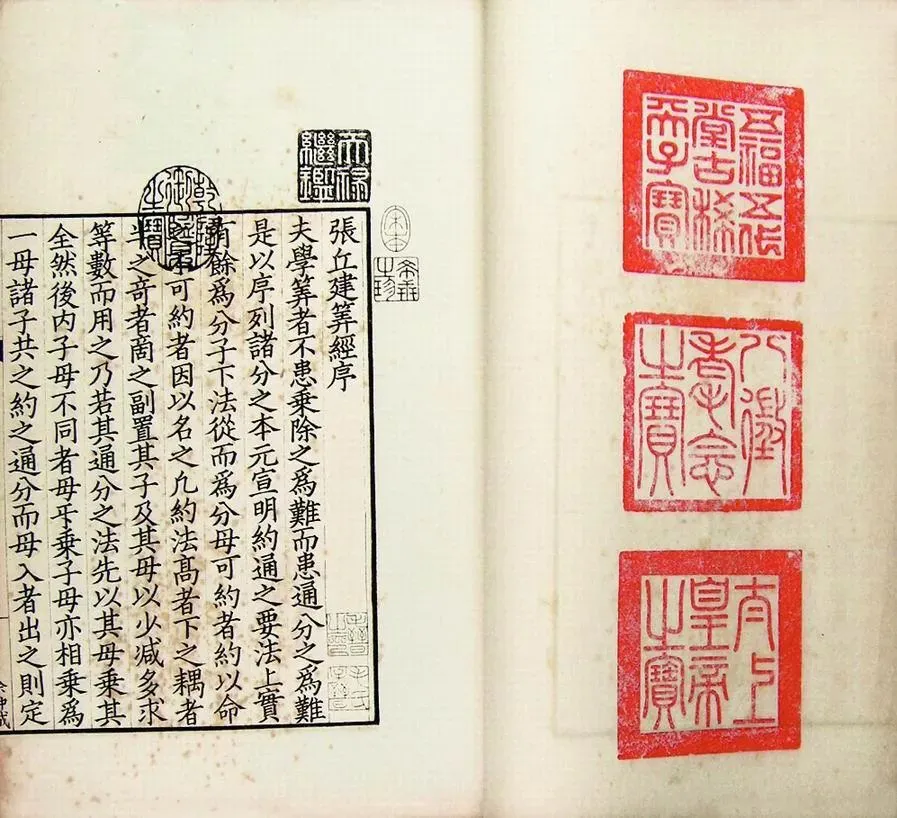 五福五代
堂古稀
天子寶
八徵
耄念
之寶
太上
皇帝
之寶
宋本
希世
之珍
天祿
繼鑑
乾隆
御覽
之寶
張丘建筭經序
夫學筭者不患乗除之爲難而患通分之爲難
是以序列諸分之本元宣明約通之要法上實
有餘爲分子下法從而爲分母可約者約以命
之不可約者因以名之凡約法髙者下之耦者
半之奇者啇之副置其子及其母以少减多求
等數而用之乃若其通分之法先以其母乗其
全然後内子母不同者母㸦乗子母亦相乗爲
一母諸子共之約之通分而母入者出之則定